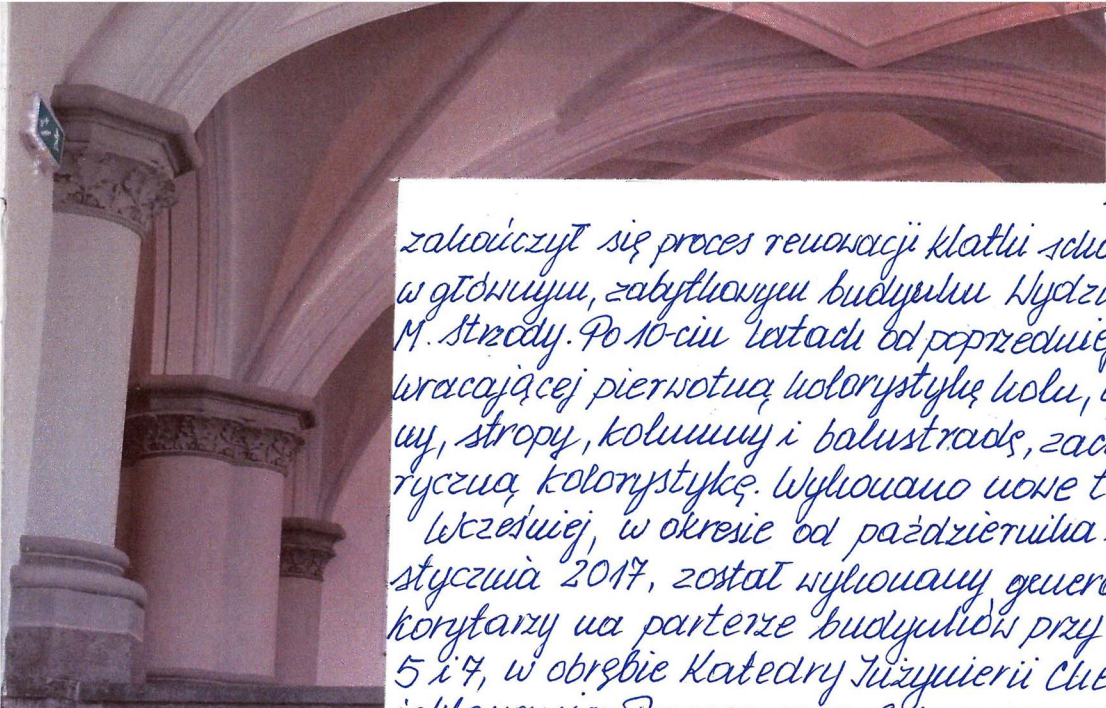 zakończył się proces renowacji klatki
w głównym, zabytkowym budynku
M. Strzody. Po 10-ciu latach od
wracającej pierwotną kolorystykę holu,
ny, stropy, kolumny i balustradę,
ryczną kolorystykę. Wykonano nowe
Wcześniej, w okresie od października
stycznia 2017, został wykonany
korytarzy na parterze budynków przy
5 i 7, w obrębie Katedry Inżynierii